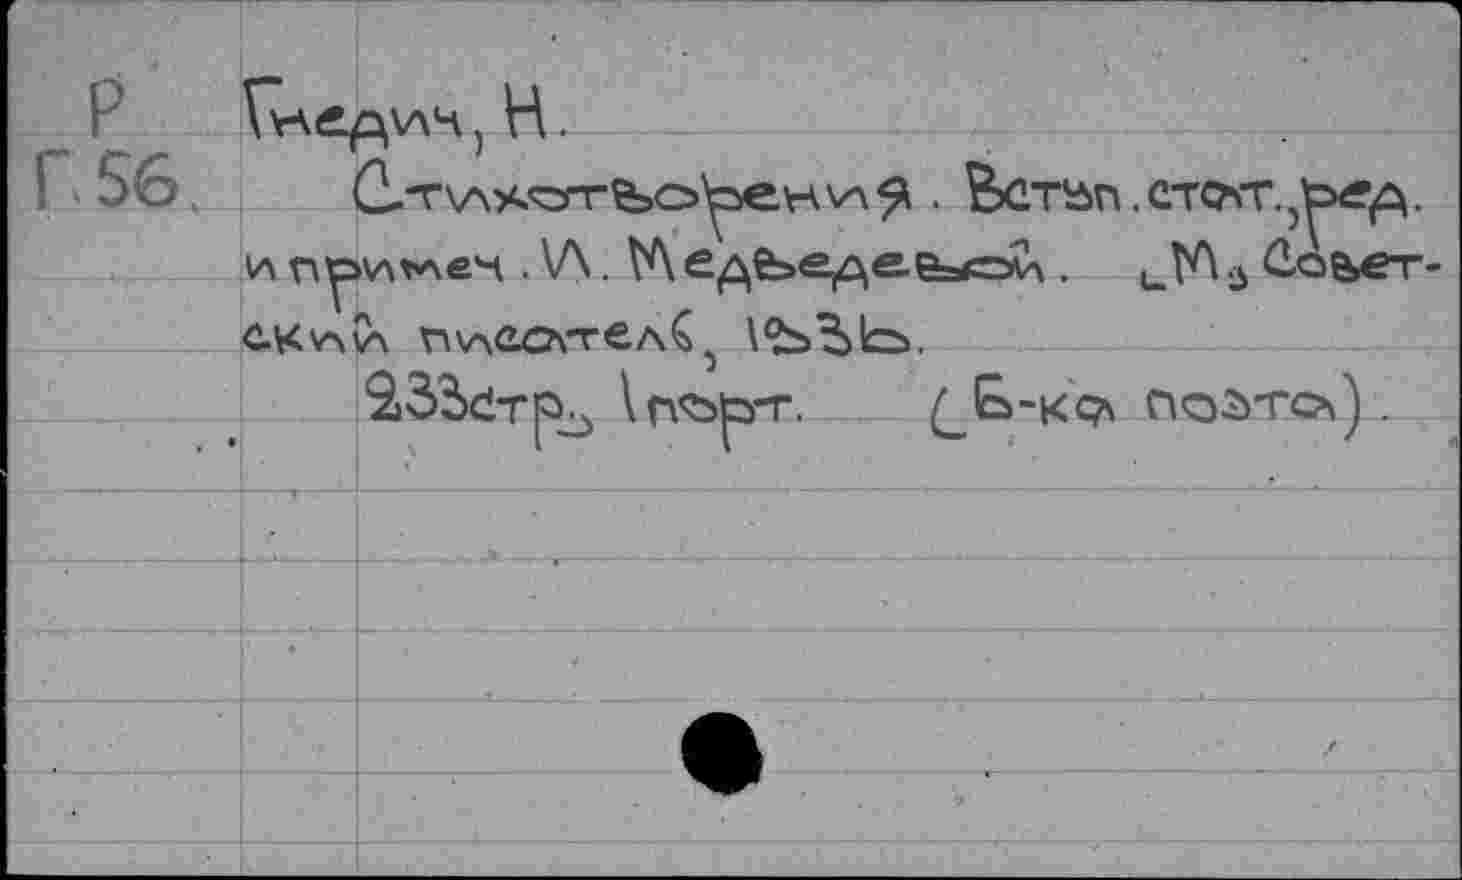 Р Гнедич, Н.
Г.56. Стихотворения. Вступ.стат.,ред.
и примеч. И. Медведевой. [М., Совет-
ский писатель, 1936.
233стр., 1 порт. (Б-ка поэта).